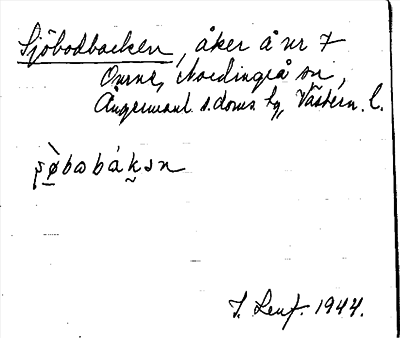 Sjöbodbacken, åker å nr 7
Omne, Nordingrå sn,
Ångermanl. s. doms hg, Västern. l.
ʂø̀bobákən
J. Leuf. 1944.